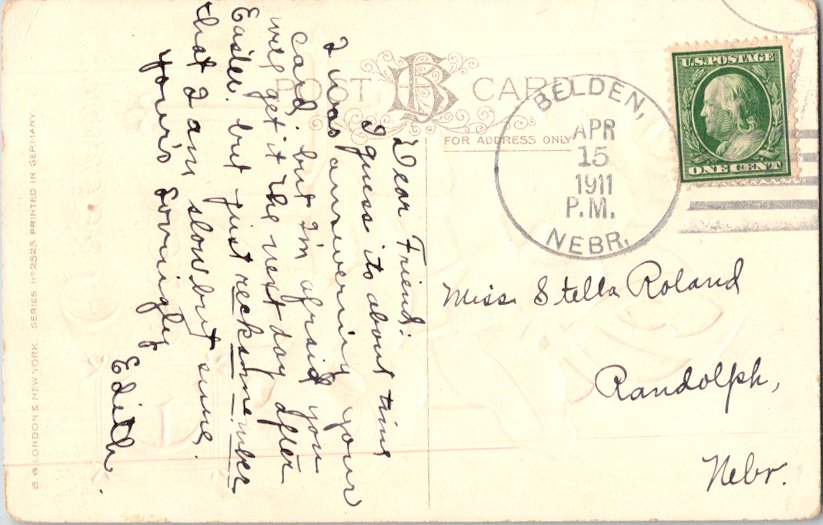 POST CARD
BK
FOR ADDRESS ONLY
U.S. POSTAGE
ONE CENT
BELDEN,
APR
15
1911
P.M.
NEBR.
Dear Friend:
I guess its about time
I was answering your
card, but I'm afraid you
will get it the next day after
Easter. but just reckonnember
that I am slow but sure.
Your's Lovingly
Edith.
Miss Stella Roland
Randolph,
Nebr.
B.B. LONDON & NEW YORK. SERIES No 2525 PRINTED IN GERMANY.